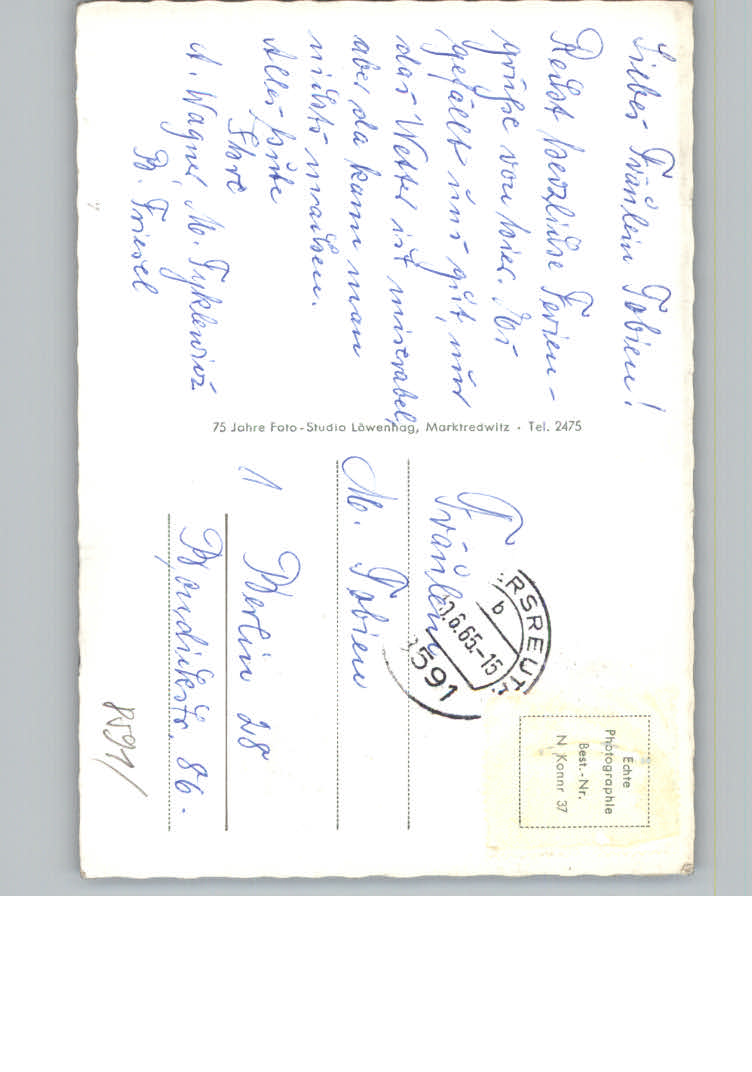 Liebes Fräulein Tobien!
Recht herzliche Ferien-
grüße von hier. Es
gefällt uns gut, nur
das Wetter ist miserabel,
aber da kann man
nichts machen.
Alles Gute
Ihre
A. Wagner, M.
B. Friesel
75 Jahre Foto-Studio Löwenhag, Marktredwitz · Tel. 2475
Fräulein
M. Tobien
1 Berlin 28
str. 86.
RSREUTH
b
.6.65.-15
591
Echte
Photographie
Best.-Nr.
N Konnr 37
8591/